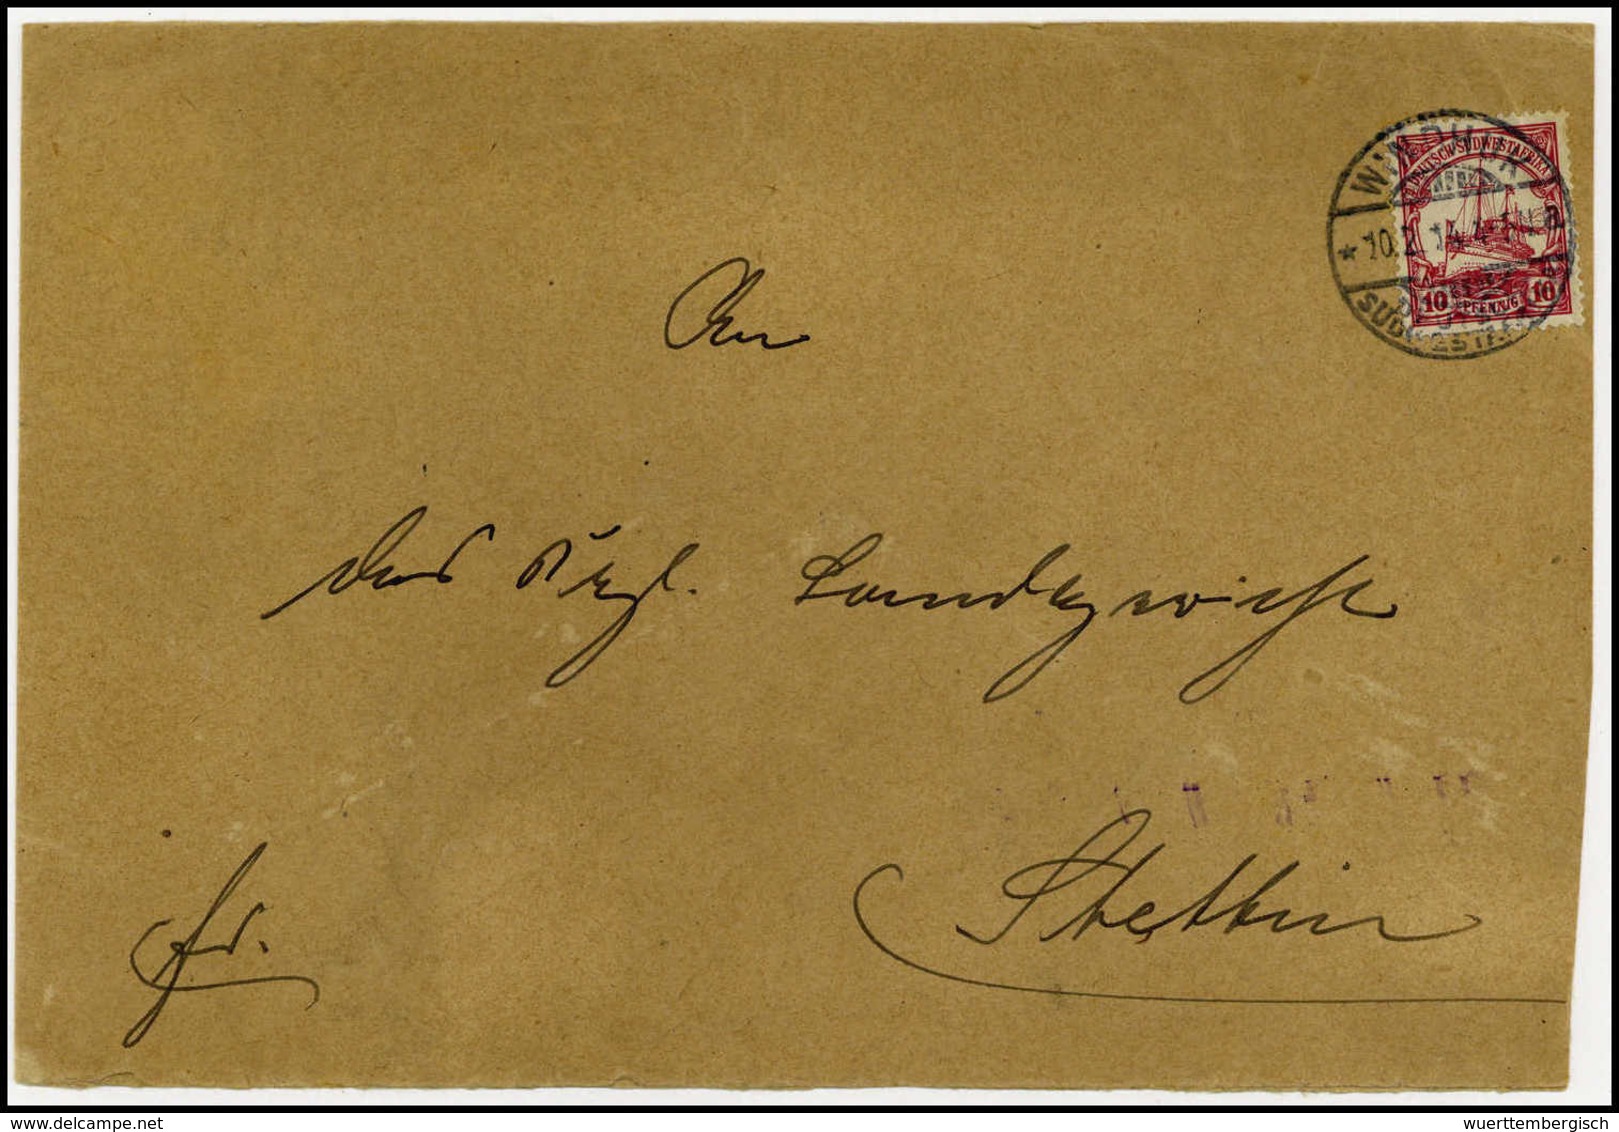 WINDHUK
DEUTSCH-SÜDWESTAFRIKA
* 10.2.14.4-
10 PFENNIG 10
An
das Kgl. Landgericht
Stettin
fr.
www.delcampe.net
wuerttembergisch